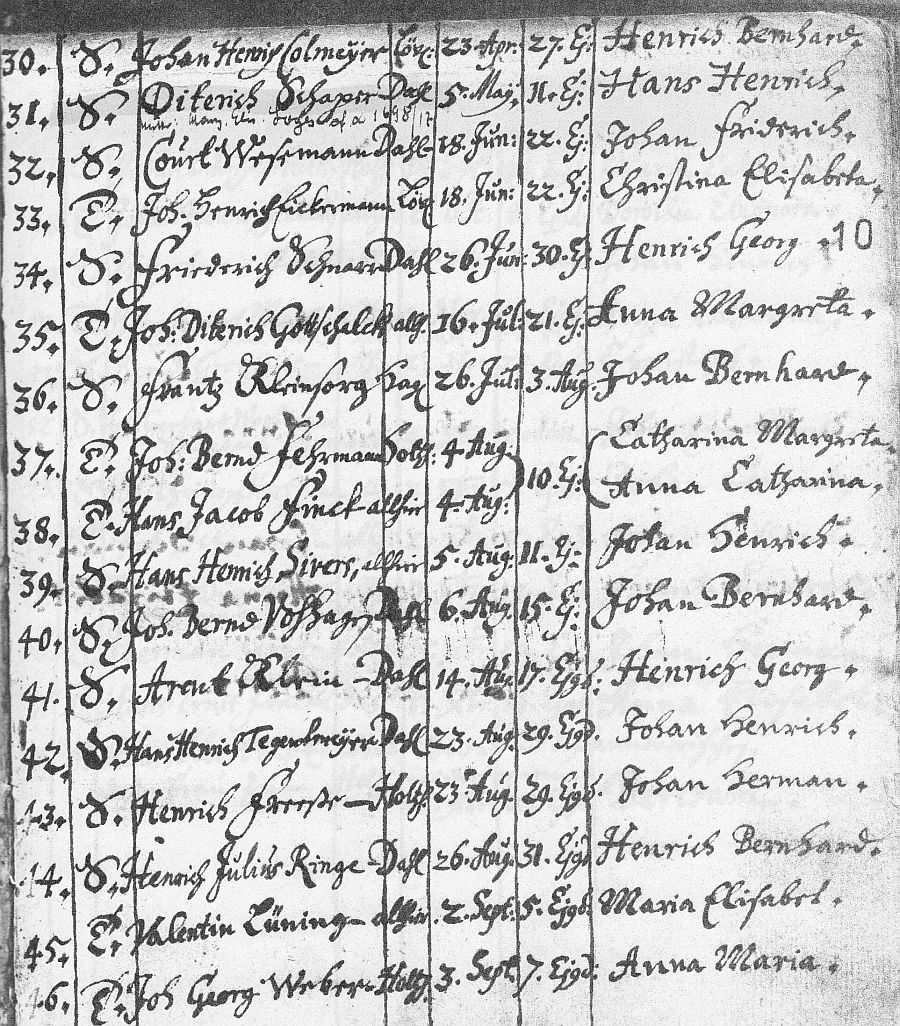 30. S. Johan Henrich Colmeÿer Lör: 23. Apr: 27. Ej: Henrich Bernhard.
31. S. Diterich Schaper Dahl 5. Maÿ. 11. Ej: Hans Henrich.
1698
32. S. Court Wesemann Dahl 18. Jun: 22. Ej: Johan Friderich.
33. T. Joh. Henrich Eickermann Lör 18. Jun: 22. Ej: Christina Elisabeta.
34. S. Friederich Schnarr Dahl 26. Jun: 30. Ej Henrich Georg. 10
35. T. Joh: Diterich Gottschalck allh. 16. Jul: 21. Ej: Anna Margreta.
36. S. Frantz Kleinsorg Hag 26. Juli 3. Aug. Johan Bernhard.
37. T. Joh: Bernd Fehrmann Holtz: 4 Aug: 10. Ej: Catharina Margreta.
38. T. Hans Jacob Finck allhier 4. Aug: Anna Catharina.
39. S. Hans Henrich Sivers, allhier 5. Aug. 11. Ej. Johan Henrich.
40. S. Joh. Bernd Voshage Dahl 6. Aug. 15. Ej: Johan Bernhard.
41. S. Arent Klein Dahl 14. Aug. 17. Ejgd: Henrich Georg.
42. S. Hans Henrich Tegentmeÿer Dahl 23. Aug. 29. Ejgd. Johan Henrich.
43. S. Henrich Freese Holtzh. 23 Aug. 29. Ejgd. Johan Herman.
44. S. Henrich Julius Ringe Dahl 26. Aug. 31. Ejgd Henrich Bernhard.
45. T. Valentin Lüning allhier. 2. Sept: 5. Ejgd. Maria Elisabet.
46. T. Joh Georg Weber Holtzh. 3. Sept. 7. Ejgd: Anna Maria.